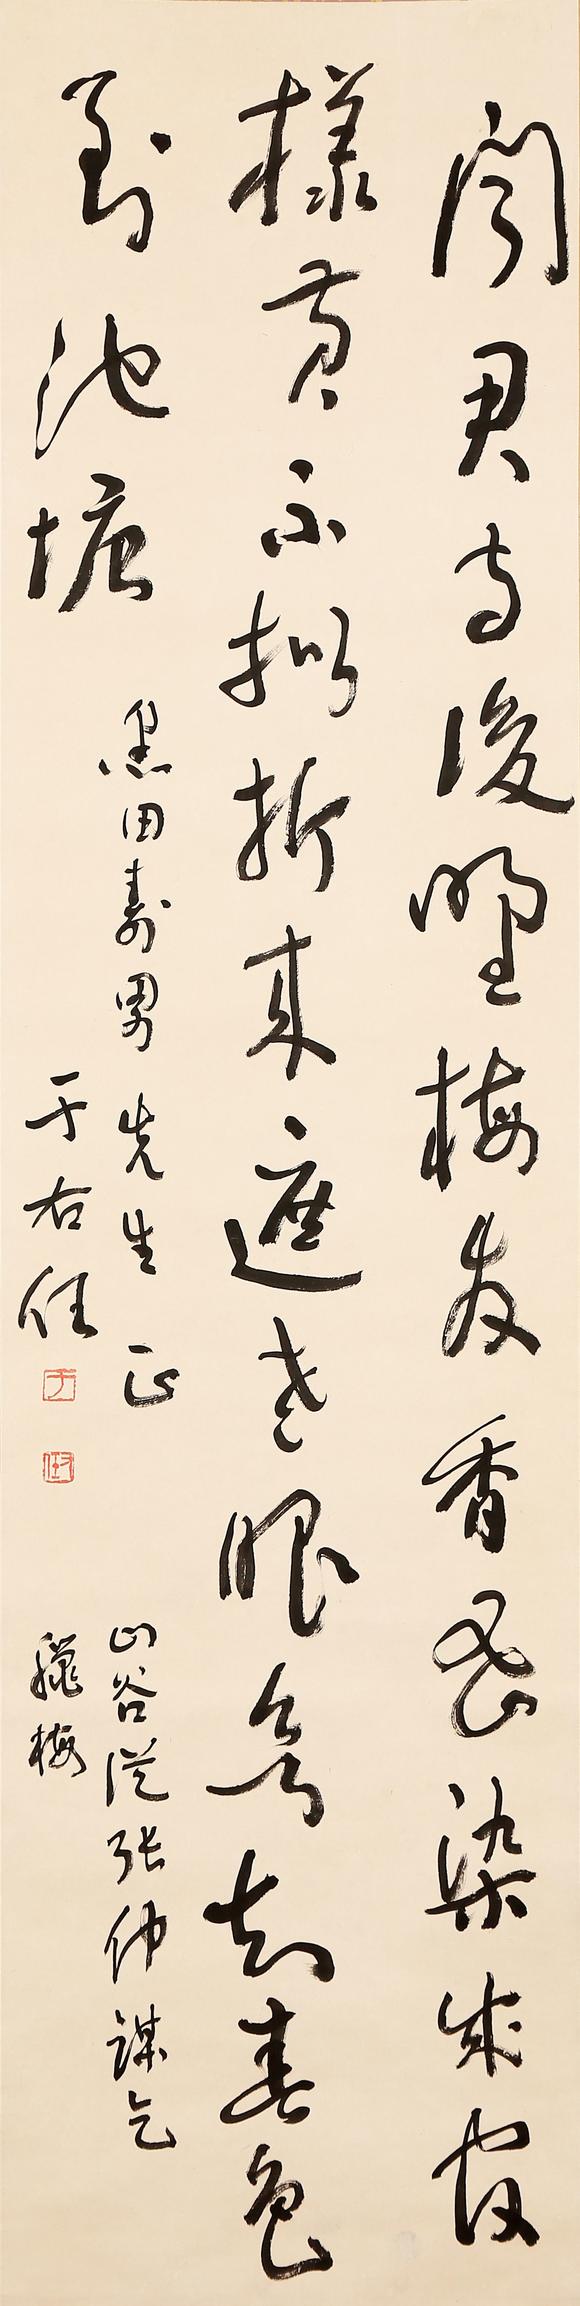 聞君寺後野梅發香蜜染成宮
樣黃不擬折來遮老眼欲知春色
到池塘
黑田壽男先生正
于右任
山谷從張仲謀乞
臘梅